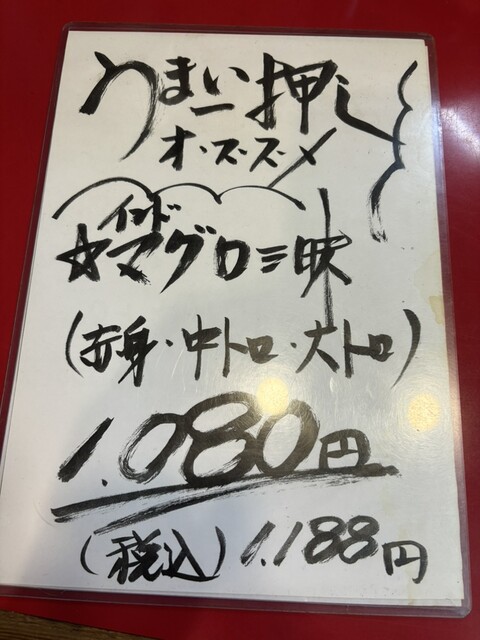 うまい一押し
オススメ
インド
☆マグロ三昧
(赤身・中トロ・大トロ)
1.080円
(税込)1.188円